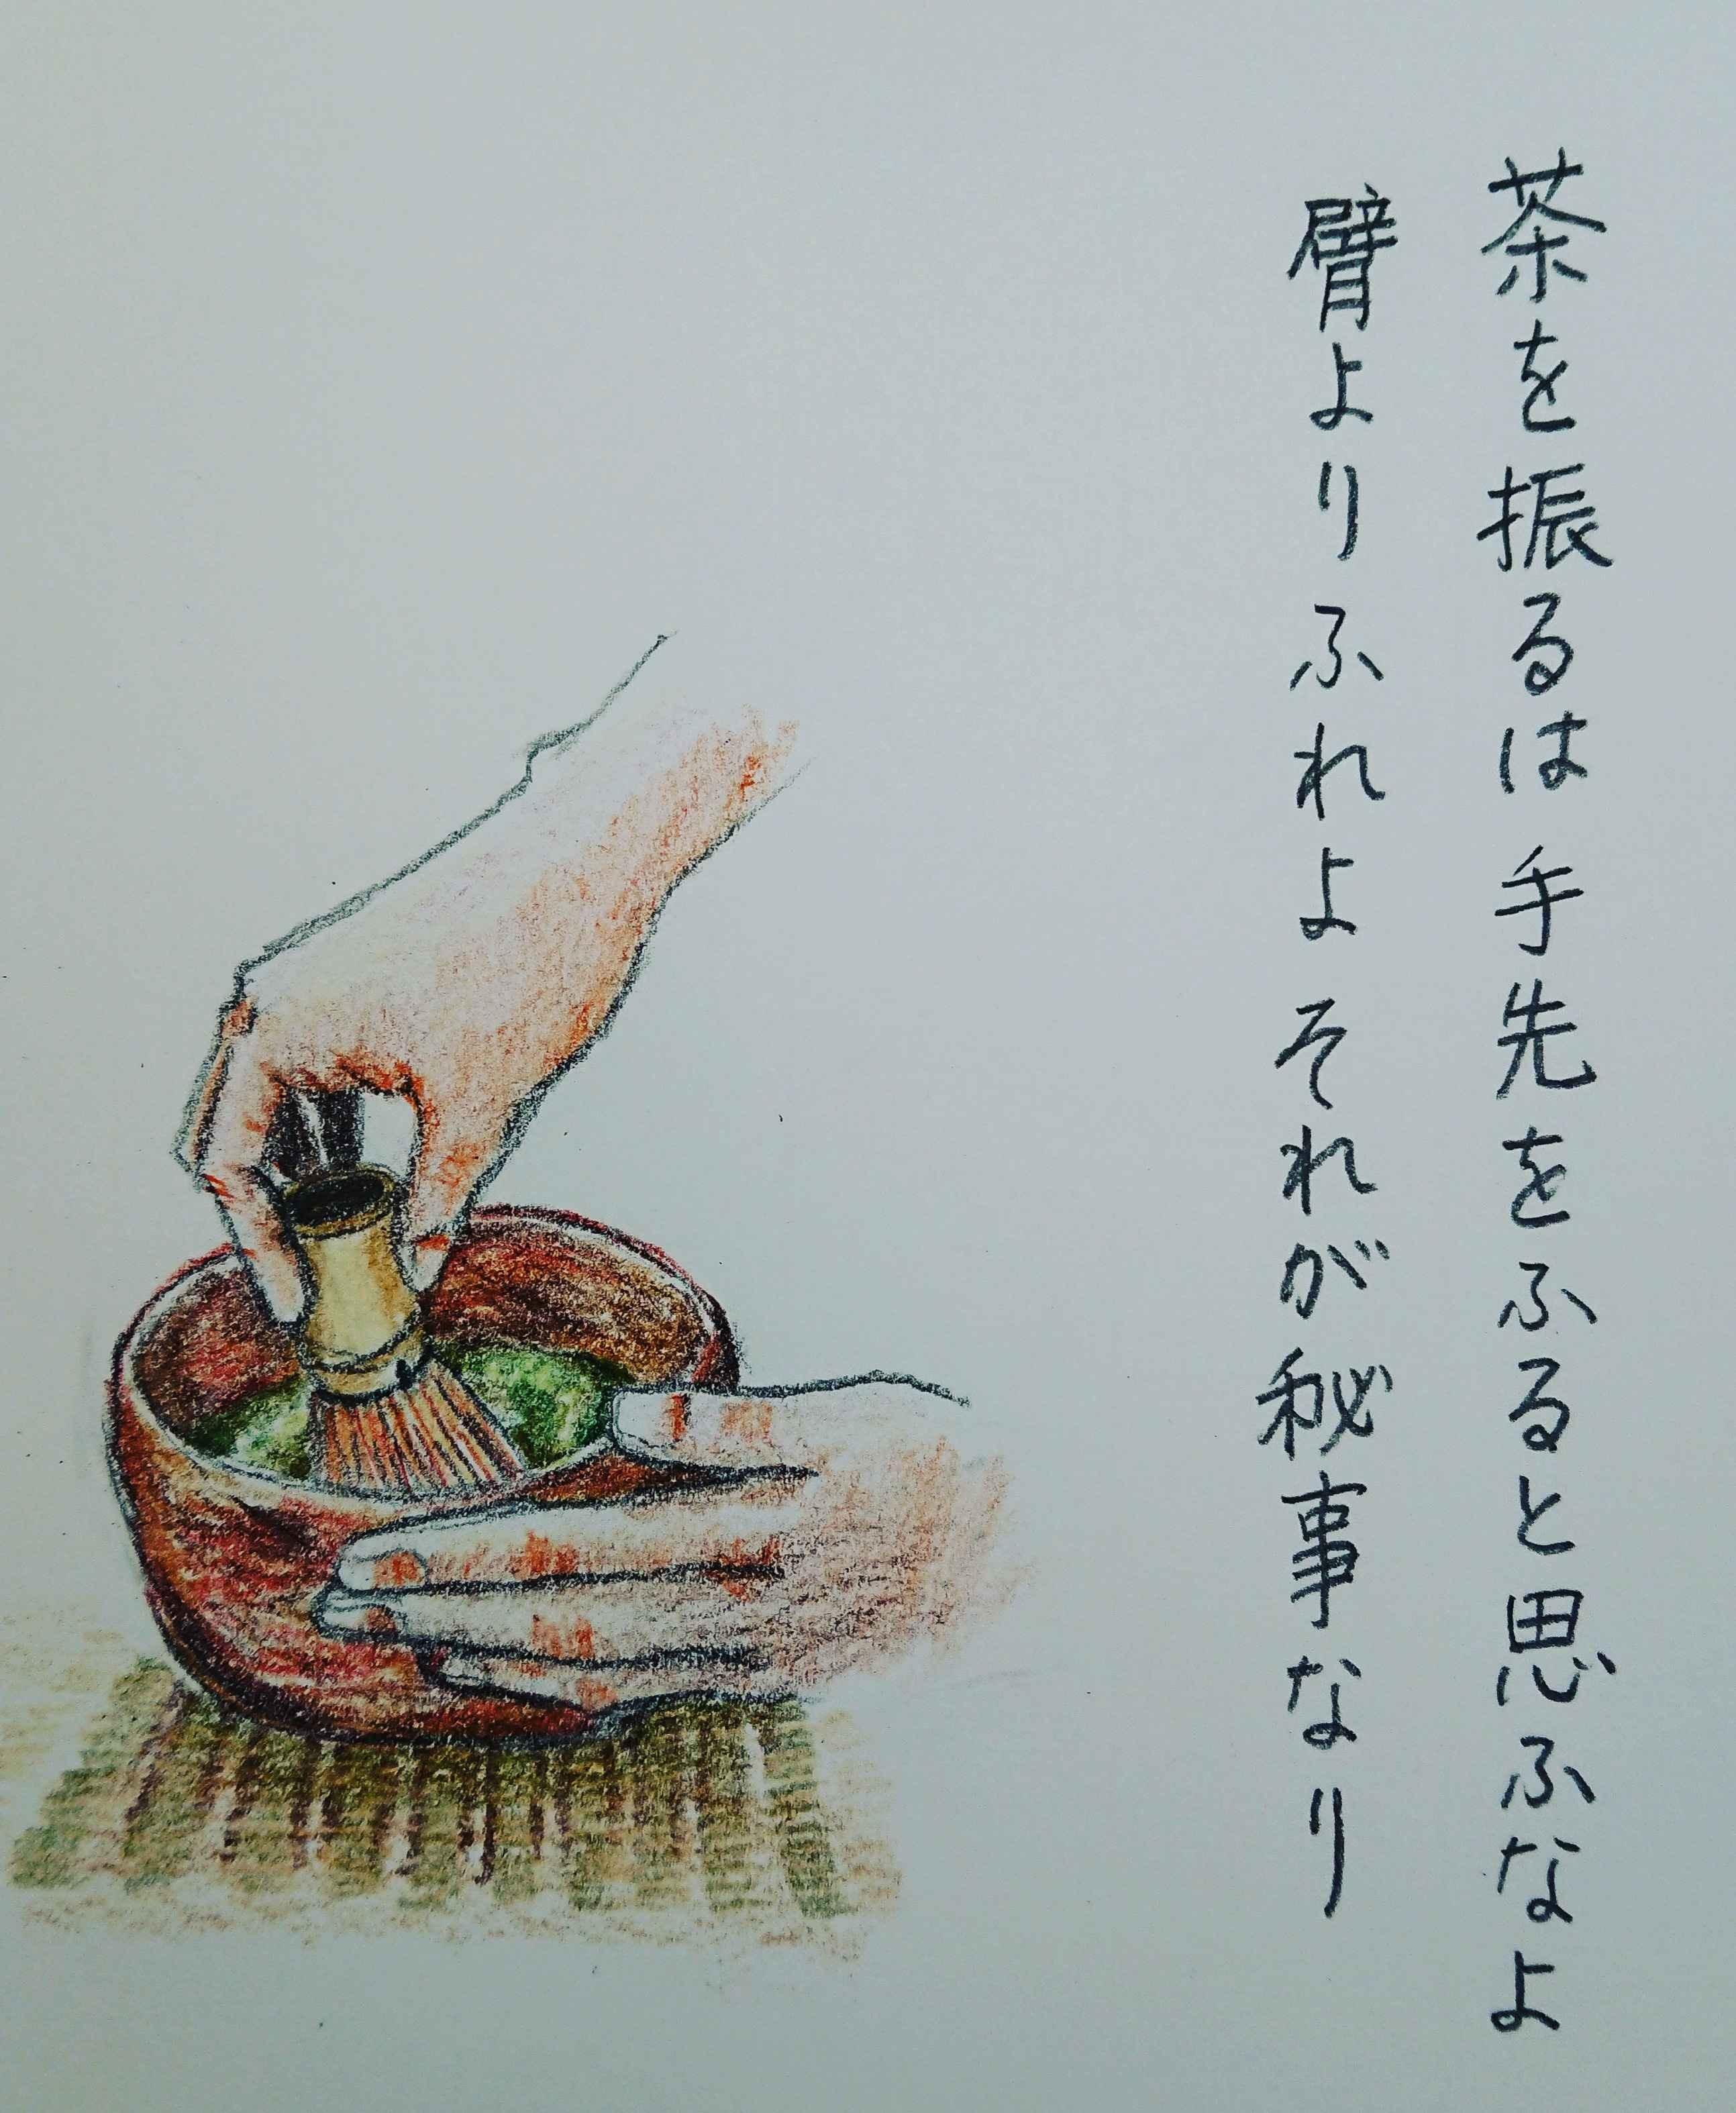 茶を振るは手先をふると思ふなよ
臂よりふれよそれが秘事なり